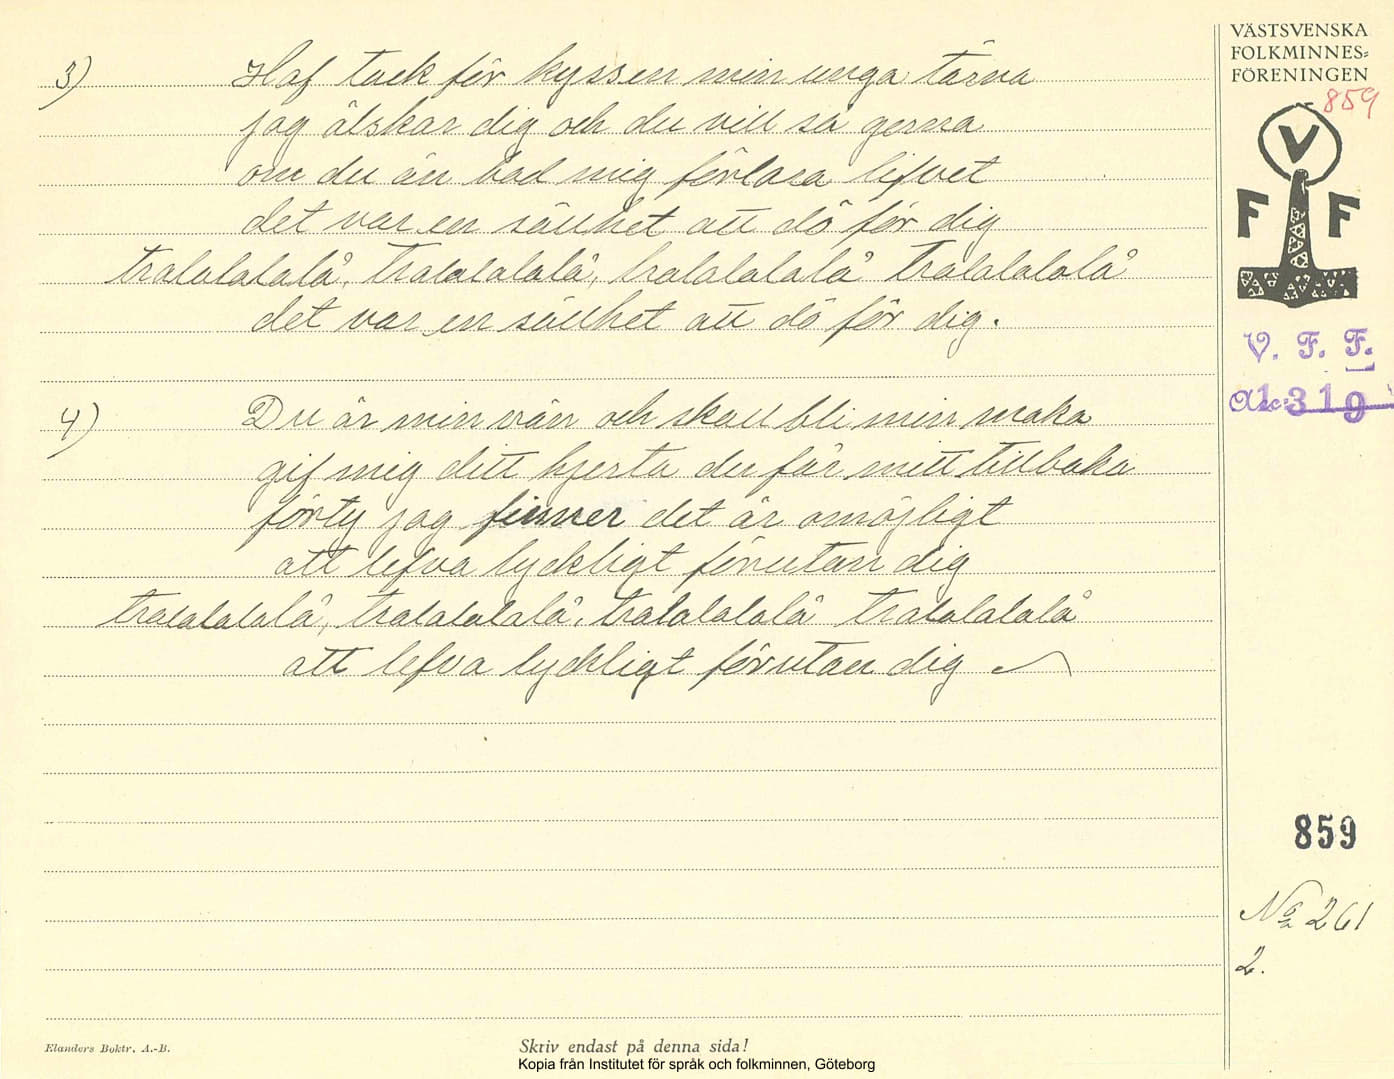 3) Haf tack för kyssen min unga tärna
jag älskar dig och du vill så gerna
om du än bad mig förlora lifvet
det var en sällhet att dö för dig
tralalalalalå, tralalalalalå, tralalalalalå tralalalalalå
det var en sällhet att dö för dig.
4) Du är min vän och skall bli min maka
gif mig ditt hjerta du får mitt tillbaka
förty jag finner det är omöjligt
att lefva lyckligt förutan dig
tralalalalalå, tralalalalalå, tralalalalalå tralalalalalå
att lefva lyckligt förutan dig
VÄSTSVENSKA
FOLKMINNES-
FÖRENINGEN
859
V
F F
V. F. F.
Acc: 1319
859
No 261
2.
Elanders Boktr. A.-B.
Skriv endast på denna sida!
Kopia från Institutet för språk och folkminnen, Göteborg